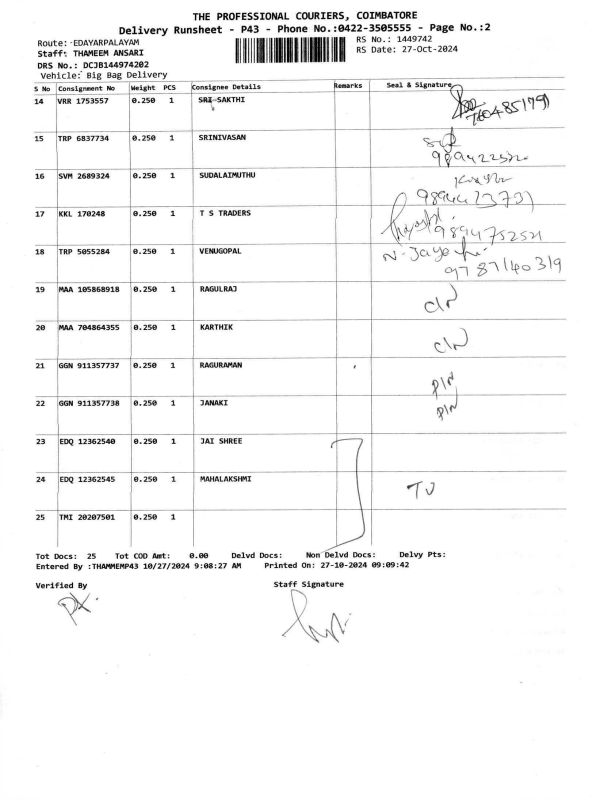 THE PROFESSIONAL COURIERS, COIMBATORE
Delivery Runsheet - P43 - Phone No.:0422-3505555 - Page No.:2
Route: EDAYARPALAYAM RS No.: 1449742
Staff: THAMEEM ANSARI RS Date: 27-Oct-2024
DRS No.: DCJB144974202
Vehicle: Big Bag Delivery
S No Consignment No Weight PCS Consignee Details Remarks Seal & Signature
14 VRR 1753557 0.250 1 SRI SAKTHI
15 TRP 6837734 0.250 1 SRINIVASAN
16 SVM 2689324 0.250 1 SUDALAIMUTHU
17 KKL 170248 0.250 1 T S TRADERS 9894752521
18 TRP 5055284 0.250 1 VENUGOPAL 9787140319
19 MAA 105868918 0.250 1 RAGULRAJ C/N
20 MAA 704864355 0.250 1 KARTHIK C/N
21 GGN 911357737 0.250 1 RAGURAMAN P/N
22 GGN 911357738 0.250 1 JANAKI P/N
23 EDQ 12362540 0.250 1 JAI SHREE
24 EDQ 12362545 0.250 1 MAHALAKSHMI
25 TMI 20207501 0.250 1
Tot Docs: 25 Tot COD Amt: 0.00 Delvd Docs: Non Delvd Docs: Delvy Pts:
Entered By :THAMMEMP43 10/27/2024 9:08:27 AM Printed On: 27-10-2024 09:09:42
Verified By Staff Signature